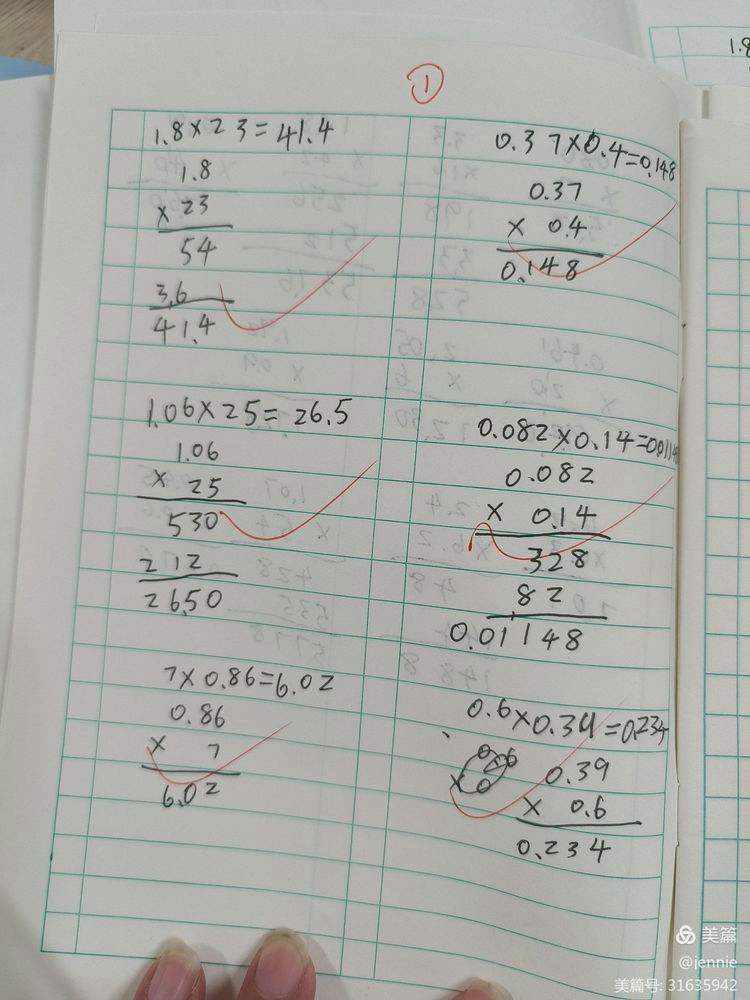 ①
1.8×23=41.4
1.8
×23
54
3.6
41.4
1.06×25=26.5
1.06
× 25
530
212
26.50
7×0.86=6.02
0.86
× 7
6.02
0.37×0.4=0.148
0.37
× 0.4
0.148
0.082×0.14=0.01148
0.082
× 0.14
328
82
0.01148
0.6×0.39=0.234
0.39
× 0.6
0.234
1.8
美篇
@jennie
美篇号: 31635942